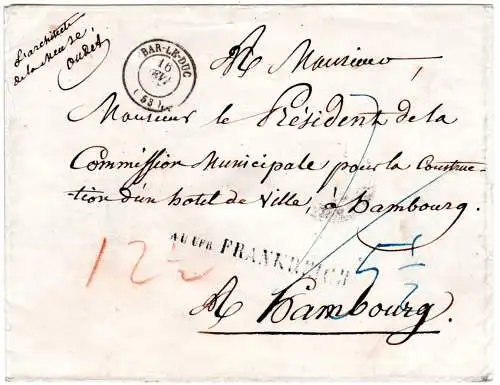 L'architecte
de la Meuse
Oudet
BAR-LE-DUC
16
(53)
A Monsieur,
Monsieur le Président de la
Commission Municipale pour la Construc-
tion d'un hotel de Ville, à Hambourg.
AUS FRANKREICH
12½
5½
A Hambourg.